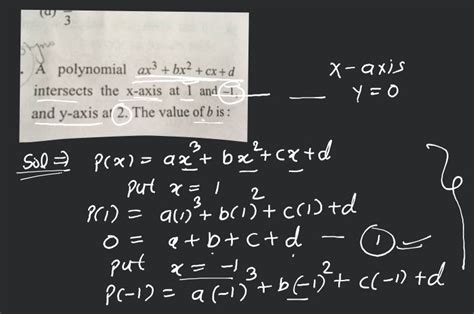 (d) 3
A polynomial ax³ + bx² + cx + d
intersects the x-axis at 1 and -1
and y-axis at 2. The value of b is :
x-axis
y = 0
Sol ⇒ P(x) = ax³ + bx² + cx + d
put x = 1
P(1) = a(1)³ + b(1)² + c(1) + d
0 = a + b + c + d — ①
put x = -1
P(-1) = a(-1)³ + b(-1)² + c(-1) + d